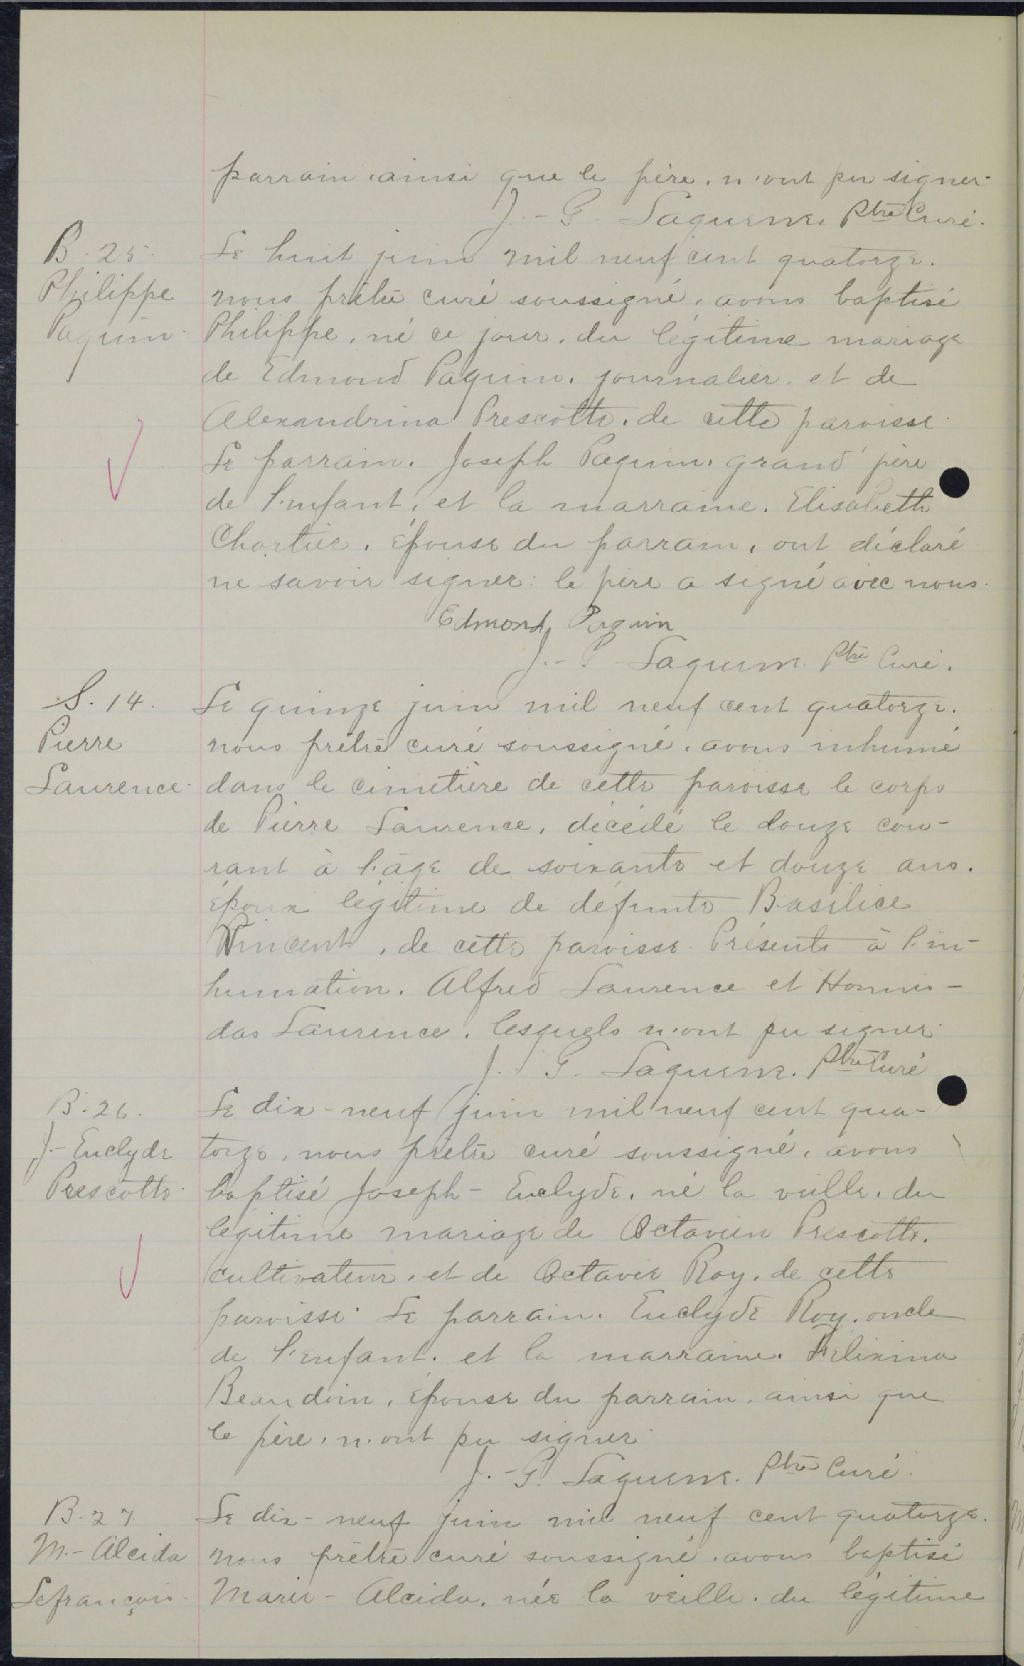 parrain ainsi que le père, n'ont pu signer.
J.-G. Laquerre, Ptre Curé.
B. 25.
Philippe
Paquin.
Le huit juin mil neuf cent quatorze.
nous prêtre curé soussigné, avons baptisé
Philippe, né ce jour, du légitime mariage
de Edmond Paquin, journalier et de
Alexandrina Prescotte, de cette paroisse.
Le parrain, Joseph Paquin, grand'père
de l'enfant, et la marraine, Elisabeth
Chartier, épouse du parrain, ont déclaré
ne savoir signer: le père a signé avec nous.
Edmond Paquin
J.-G. Laquerre, Ptre Curé.
S. 14.
Pierre
Laurence.
Le quinze juin mil neuf cent quatorze.
nous prêtre curé soussigné, avons inhumé
dans le cimetière de cette paroisse le corps
de Pierre Laurence, décédé le douze cou-
rant à l'âge de soixante et douze ans.
époux légitime de défunte Basilice
Vincent, de cette paroisse. Présents à l'in-
humation. Alfred Laurence et Hormis-
das Laurence, lesquels n'ont pu signer.
J. G. Laquerre, Ptre Curé
B. 26.
J.-Euclyde
Prescotte.
Le dix-neuf juin mil neuf cent qua-
torze, nous prêtre curé soussigné, avons
baptisé Joseph-Euclyde, né la veille, du
légitime mariage de Octavien Prescotte,
cultivateur, et de Octavie Roy, de cette
paroisse. Le parrain, Euclyde Roy, oncle
de l'enfant, et la marraine, Félixina
Beaudoin, épouse du parrain, ainsi que
le père, n'ont pu signer.
J.-G. Laquerre, Ptre Curé.
B. 27
M.-Alcida
Lefrançois.
Le dix-neuf juin mil neuf cent quatorze.
nous prêtre curé soussigné, avons baptisé
Marie-Alcida, née la veille, du légitime